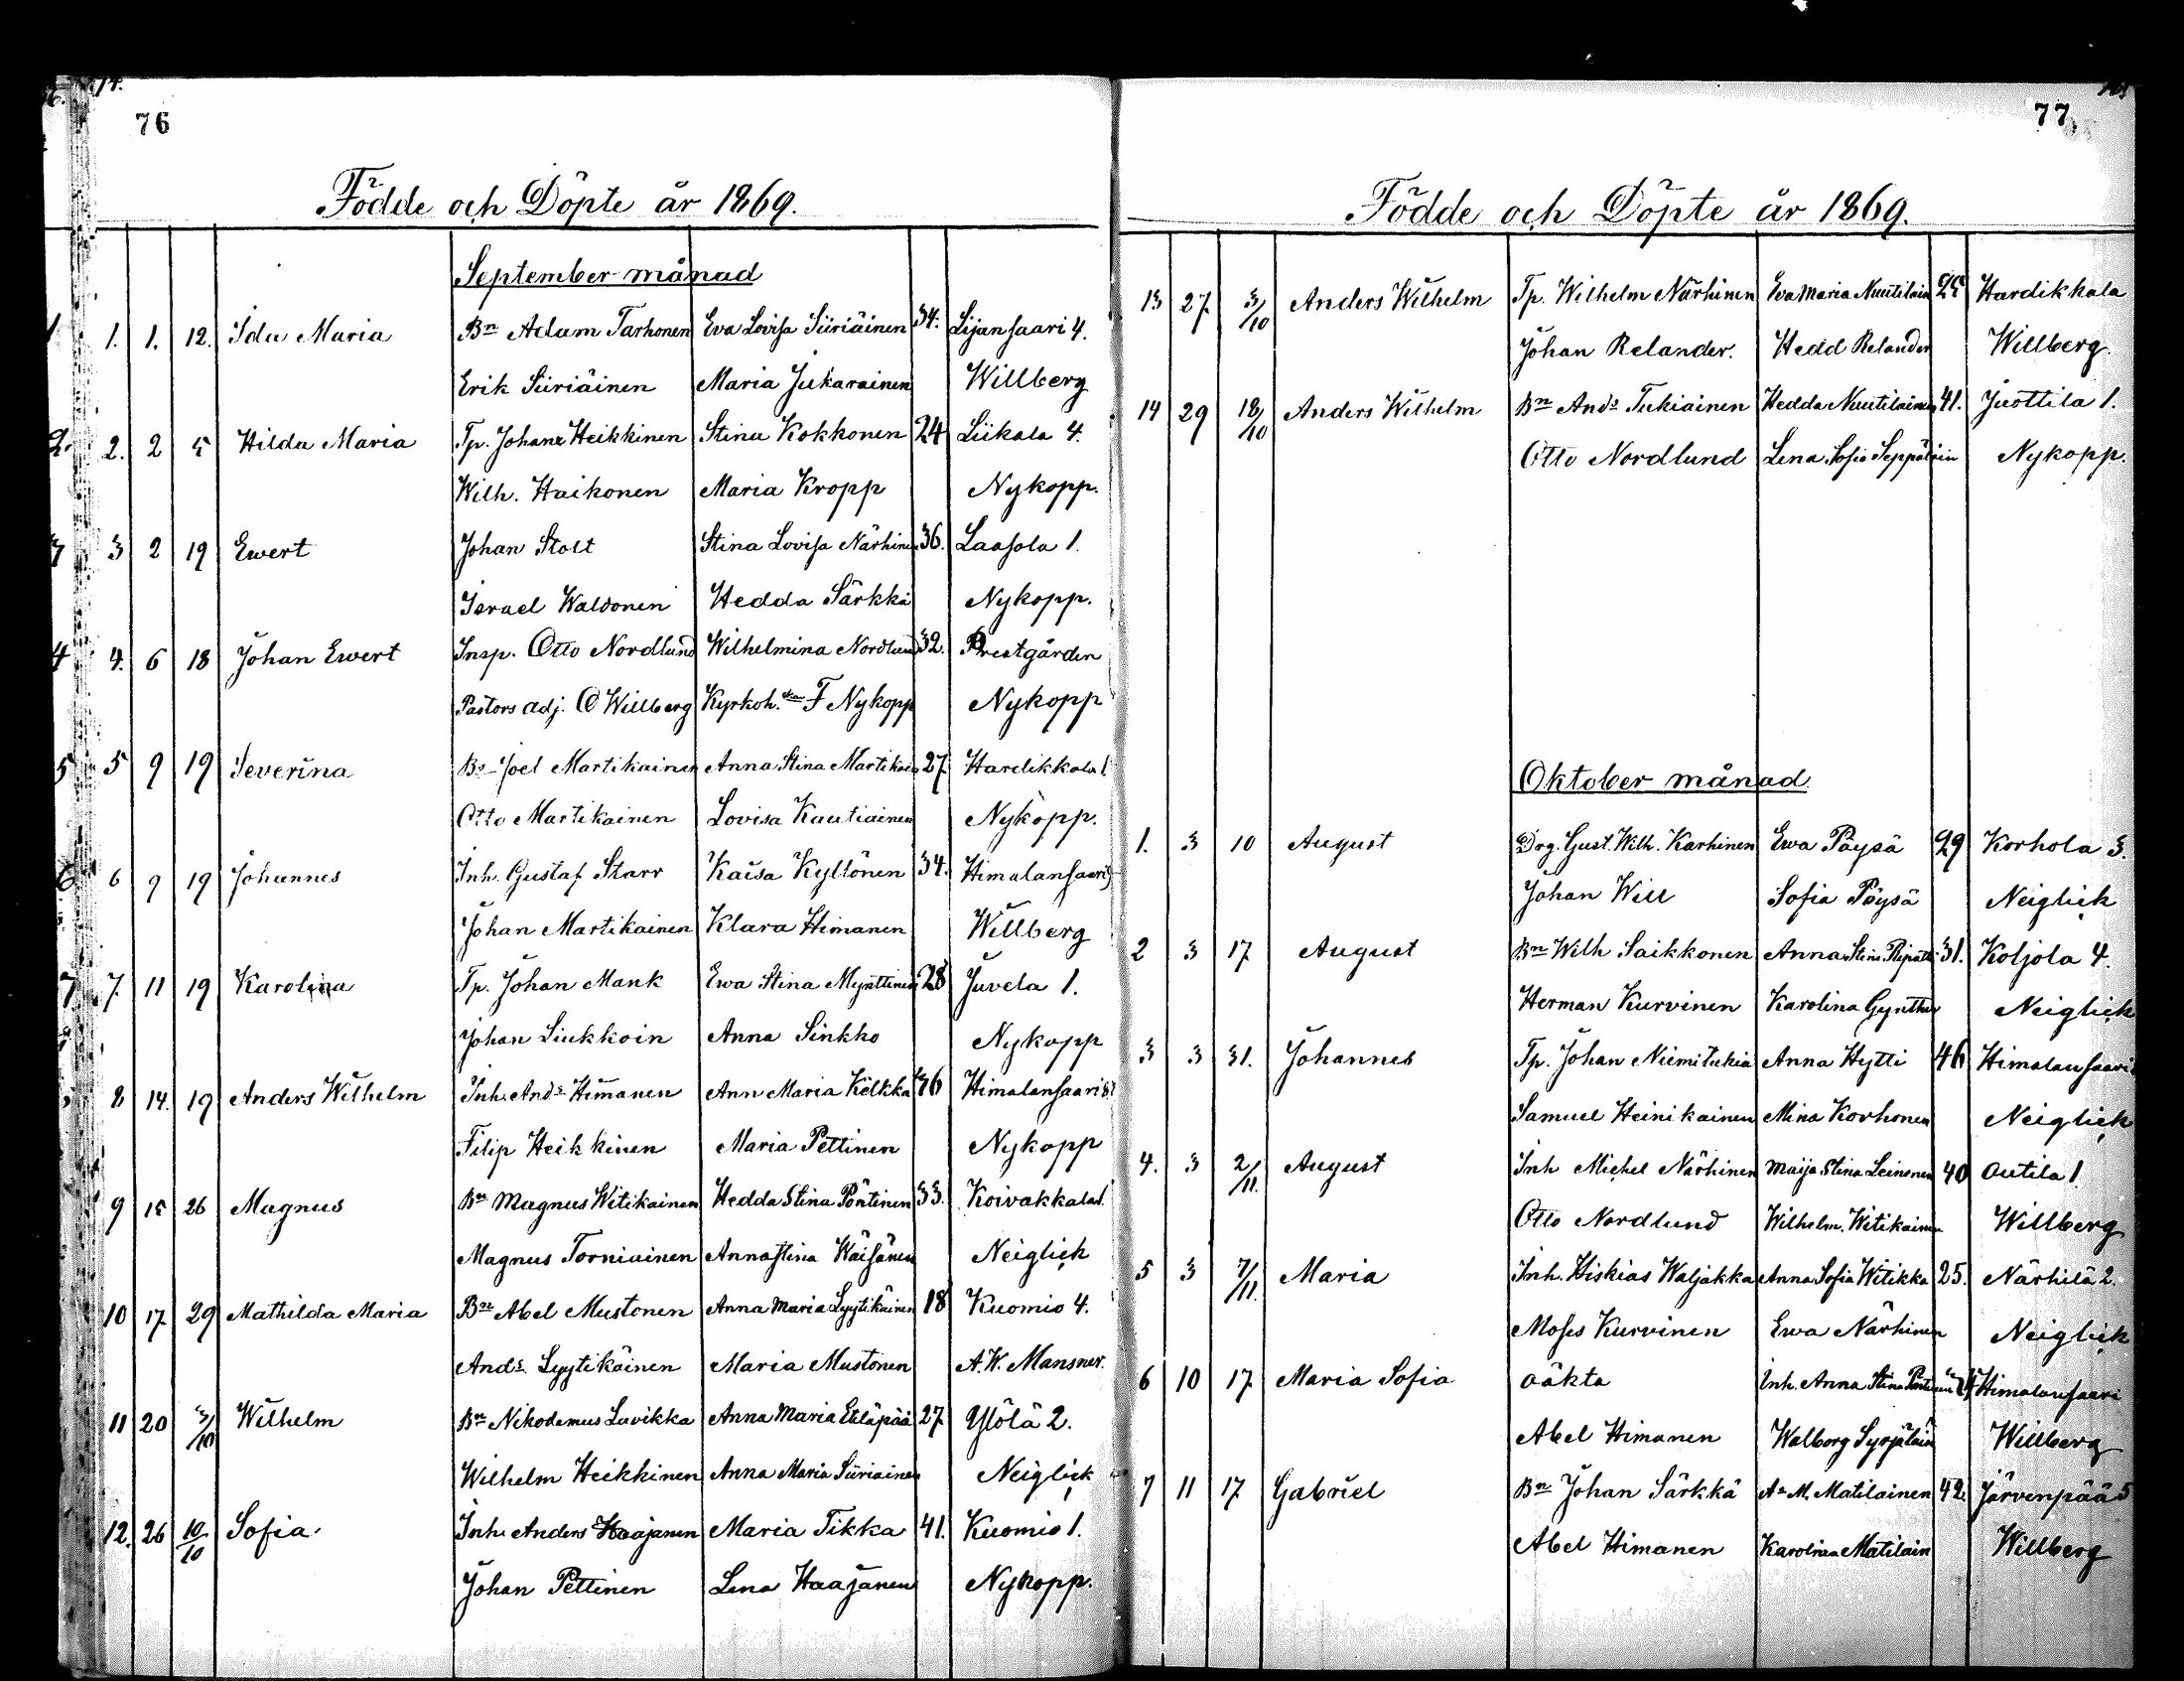 76
Födde och Döpte år 1869.
September månad
1 1. 1. 12. Ida Maria Bn Adam Tarhonen Eva Lovisa Siiriäinen 34. Lijansaari 4.
Erik Siiriäinen Maria Jukarainen Willberg
2. 2. 2 5 Hilda Maria Tp. Johan Heikkinen Stina Kokkonen 24 Liikala 4.
Wilh. Haikonen Maria Kropp Nykopp.
3 2 19 Ewert Johan Stolt Stina Lovisa Närhinen 36. Laasola 1.
Israel Waldonen Hedda Särkkä Nykopp.
4 4. 6 18 Johan Ewert Insp. Otto Nordlund Wilhelmina Nordlund 32. Prestgården
Pastors adj. O Willberg Kyrkoh. F Nykopp Nykopp
5 5 9 19 Severina Bn Joel Martikainen Anna Stina Martikain 27 Hardikkala 1.
Otto Martikainen Lovisa Kautiainen Nykopp.
6 6 9 19 Johannes Inh. Gustaf Starr Kaisa Kyllönen 34. Himalansaari
Johan Martikainen Klara Himanen Willberg
7 7. 11 19 Karolina Tp. Johan Mank Ewa Stina Mynttinen 28 Juvela 1.
Johan Liukkoin Anna Sinkko Nykopp
8 14. 19 Anders Wilhelm Inh. Ands Himanen Ann Maria Kelkka 36 Himalansaari 8.
Filip Heikkinen Maria Pettinen Nykopp
9 15 26 Magnus Bn Magnus Witikainen Hedda Stina Pöntinen 33. Koivakkala 1.
Magnus Torniainen Anna Stina Wäisänen Neiglick
10 17 29 Mathilda Maria Bn Abel Mustonen Anna Maria Lyytikäinen 18 Kuomio 4.
Ands. Lyytikäinen Maria Mustonen A. W. Mansner.
11 20 3/10 Wilhelm Bn Nikodemus Lavikka Anna Maria Eteläpää 27 Ylölä 2.
Wilhelm Heikkinen Anna Maria Siiriainen Neiglick
12. 26 10/10 Sofia Inh. Anders Haajanen Maria Tikka 41. Kuomio 1.
Johan Pettinen Lena Haajanen Nykopp.
77
Födde och Döpte år 1869.
13 27 3/10 Anders Wilhelm Tp. Wilhelm Närhinen Eva Maria Nuutilain 25 Hardikkala
Johan Relander. Hedd Relander Willberg.
14 29 18/10 Anders Wilhelm Bn Ands Tukiainen Hedda Nuutilainen 41. Juottila 1.
Otto Nordlund Lena Sofia Seppäläin Nykopp.
Oktober månad
1. 3 10 August Drg. Gust. Wilh. Karhinen Ewa Pöysä 29 Korhola 3.
Johan Will Sofia Pöysä Neiglick
2 3 17 August Bn Wilh Saikkonen Anna Stina 31. Koljola 4.
Herman Kurvinen Karolina Gynther Neiglick
3 3 31. Johannes Tp. Johan Niemitukia Anna Hytti 46 Himalansaari
Samuel Heinikainen Mina Korhonen Neiglick
4. 3 2/11. August Inh Michel Närhinen Maija Stina Leinonen 40 Outila 1
Otto Nordlund Wilhelm. Witikainen Willberg
5 3 7/11. Maria Inh. Hiskias Waljakka Anna Sofia Witikka 25. Närhilä 2.
Moses Kurvinen Ewa Närhinen Neiglick
6 10 17 Maria Sofia oäkta Inh. Anna Stina Himalansaari
Abel Himanen Walborg Syrjäläin Willberg
7 11 17 Gabriel Bn Johan Särkkä Aa M. Matilainen 42. Järvenpää 5
Abel Himanen Karolina Matilain Willberg